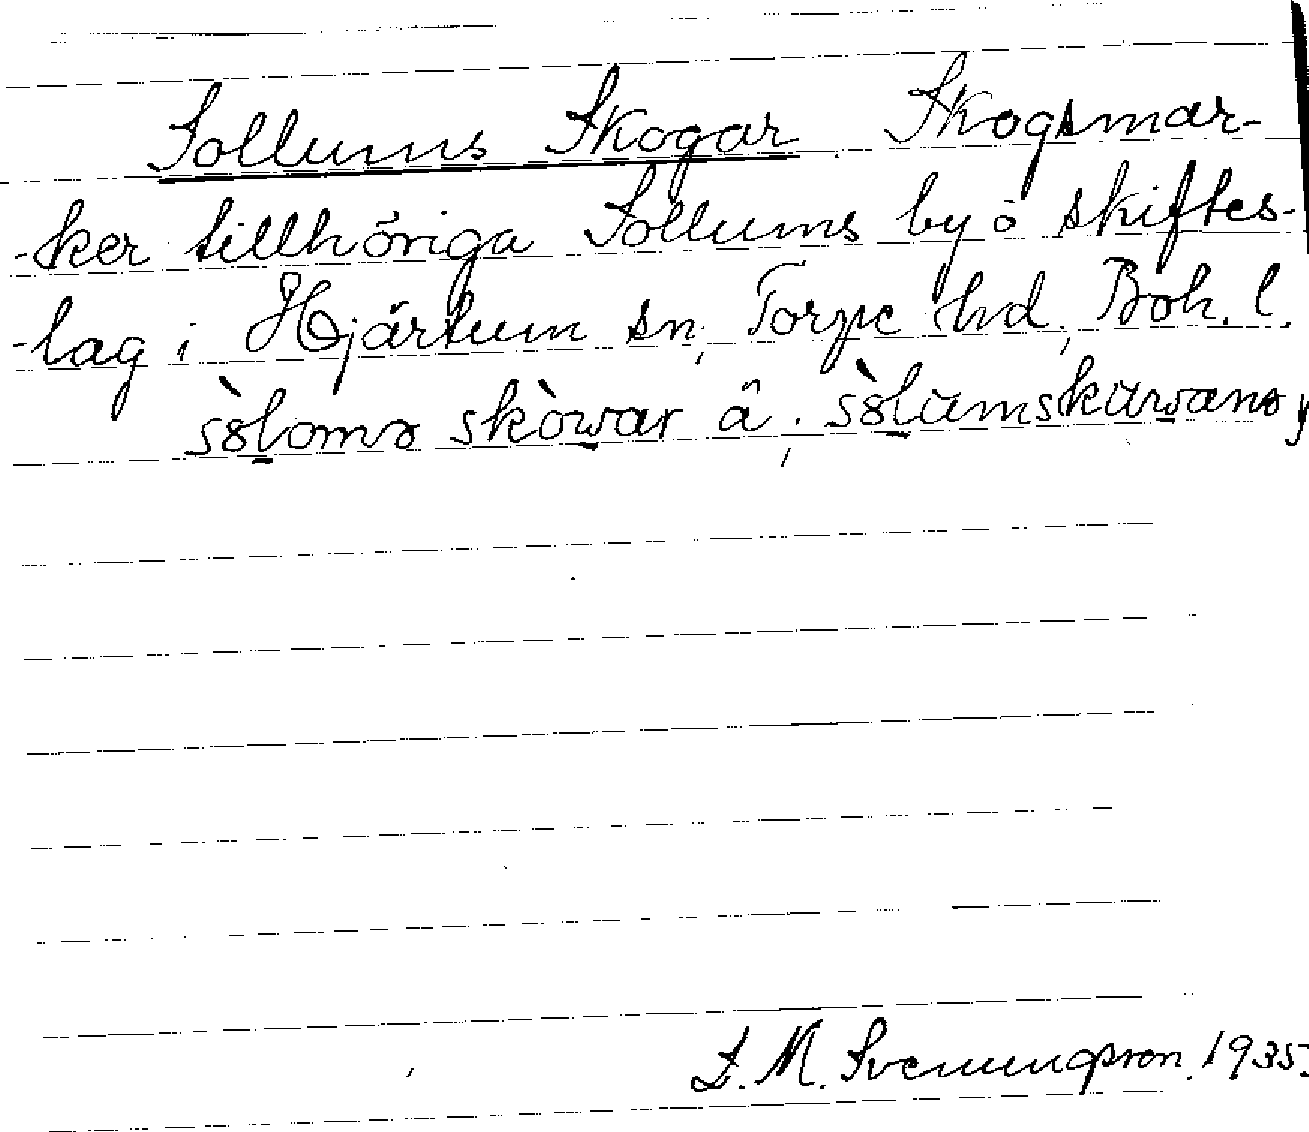 Sollums Skogar Skogsmar-
-ker tillhöriga Sollums by o skiftes-
-lag i Hjärtum sn, Torpe hd, Boh. l.
sòloms skòwar â; sòlumskuwans
M. Svenungsson. 1935.